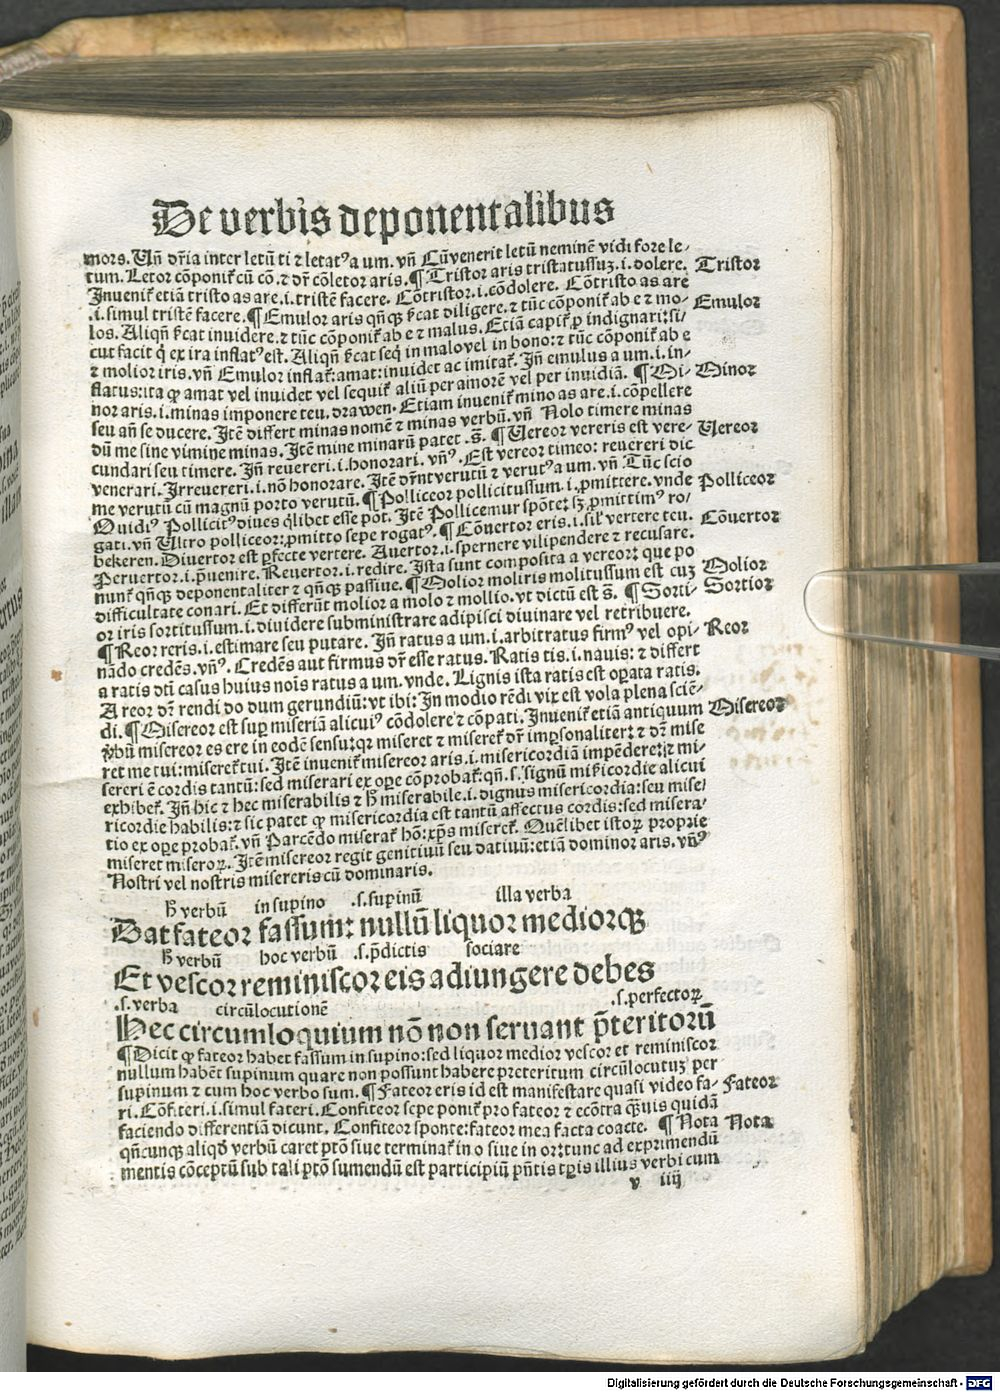 De verbis deponentalibus
mors. Vñ dr̃ia inter letũ ti ⁊ letatꝰ a um. vñ Cũ venerit letũ neminẽ vidi fore le-
tum. Letor cõponit᷑ cũ cõ. ⁊ dr̃ cõletor aris. ¶ Tristor aris tristatussuꝫ .i. dolere. Tristor
Inuenit᷑ etiã tristo as are .i. tristẽ facere. Cõtristor .i. cõdolere. Cõtristo as are
.i. simul tristẽ facere. ¶ Emulor aris qñqꝫ ſꝰcat diligere. ⁊ tũc cõponit᷑ ab e ⁊ mo- Emulor
los. Aliqñ ſꝰcat inuidere. ⁊ tũc cõponit᷑ ab e ⁊ malus. Etiã capit᷑ ꝓ indignari: si/
cut facit q̇ ex ira inflatꝰ est. Aliqñ ſꝰcat seq̇ in malo vel in bono: ⁊ tũc cõponit᷑ ab e
⁊ molior iris. vñ Emulor inflat᷑: amat: inuidet ac imitat᷑. Jñ emulus a um .i. in-
flatus: ita ꝙ amat vel inuidet vel sequit᷑ aliũ per amorẽ vel per inuidiã. ¶ Mi- Minor
nor aris .i. minas imponere teu. drawen. Etiam inuenit᷑ mino as are .i. cõpellere
seu añ se ducere. Jtẽ differt minas nomẽ ⁊ minas verbũ. vñ Nolo timere minas
dũ me sine vimine minas. Jtẽ mine minarũ patet .s̃. ¶ Vereor vereris est vere- Vereor
cundari seu timere. Jñ reuereri .i. honorari. vñꝰ. Est vereor timeo: reuereri dic
venerari. Jrreuereri .i. nõ honorare. Jtẽ dr̃nt verutũ ⁊ verutꝰ a um. vñ Tũc scio
me verutũ cũ magnũ porto verutũ. ¶ Polliceor pollicitussum .i. ꝓmittere. vnde Polliceor
Ouidiꝰ Pollicitꝰ diues q̇libet esse põt. Jtẽ Pollicemur spõte: sꝫ ꝓmittimꝰ ro/
gati. vñ Vltro polliceor: ꝓmitto sepe rogatꝰ. ¶ Cõuertor eris .i. sil̃ vertere teu. Cõuertor
bekeren. Diuertor est ꝑfecte vertere. Auertor .i. spernere vilipendere ⁊ recusare.
Peruertor .i. p̃uenire. Reuertor .i. redire. Jsta sunt composita a vereor: que po
nunt᷑ qñqꝫ deponentaliter ⁊ qñqꝫ passiue. ¶ Molior moliris molitussum est cuꝫ Molior
difficultate conari. Et differũt molior a molo ⁊ mollio. vt dictũ est s̃. ¶ Sorti- Sortior
or iris sortitussum .i. diuidere subministrare adipisci diuinare vel retribuere.
¶ Reor reris .i. estimare seu putare. Jñ ratus a um .i. arbitratus firmꝰ vel opi- Reor
nãdo credẽs. vñꝰ. Credẽs aut firmus dr̃ esse ratus. Ratis tis .i. nauis: ⁊ differt
a ratis dtĩ casus huius nois ratus a um. vnde. Lignis ista ratis est oꝑata ratis.
A reor dr̃ rendi do dum gerundiũ: vt ibi: In modio rẽdi vix est vola plena sciẽ-
di. ¶ Misereor est suꝑ miseriã alicuiꝰ cõdolere ⁊ cõpati. Jnuenit᷑ etiã antiquum Misereor
ṽbũ misereor es ere in eodẽ sensu: qꝛ miseret ⁊ miseret᷑ dr̃ imꝑsonaliter: ⁊ dr̃ mise
ret me tui: miseret᷑ tui. Jtẽ inuenit᷑ misereor aris .i. misericordiã impẽdere: ⁊ mi-
sereri ẽ cordis tantũ: sed miserari ex oꝑe cõprobat᷑: qñ .s. signũ mĩcordie alicui
exhibet᷑. Jñ hic ⁊ hec miserabilis ⁊ h̃ miserabile .i. dignus misericordia: seu mise/
ricordie habilis: ⁊ sic patet ꝙ misericordia est tantũ affectus cordis: sed misera/
tio ex oꝑe probat᷑. vñ Parcẽdo miserat᷑ hõ: xp̃s miseret᷑. Quẽlibet istoꝝ proprie
miseret miseroꝝ. Jtẽ misereor regit genitiuũ seu datiuũ: etiã dominor aris. vñꝰ
Nostri vel nostris misereris cũ dominaris.
h̃ verbũ in supino .s. supinũ illa verba
Dat fateor fassum: nullũ liquor mediorqꝫ
h̃ verbũ hoc verbũ .s. p̃dictis sociare
Et vescor reminiscor eis adiungere debes
.s. verba circũlocutionẽ .s. perfectoꝝ
Hec circumloquium nõ non seruant p̃teritorũ
¶ Dicit ꝙ fateor habet fassum in supino: sed liquor medior vescor et reminiscor
nullum habẽt supinum quare non possunt habere preteritum circũlocutuꝫ per
supinum ⁊ cum hoc verbo sum. ¶ Fateor eris id est manifestare quasi video fa- Fateor
ri. Cõfiteri .i. simul fateri. Confiteor sepe ponit᷑ pro fateor ⁊ ecõtra q̃uis quidã
faciendo differentiã dicunt. Confiteor sponte: fateor mea facta coacte. ¶ Nota Nota
qñcunqꝫ aliqd̕ verbũ caret ptõ siue terminat᷑ in o siue in or: tunc ad exprimendũ
mentis cõceptũ sub tali ptõ sumendũ est participiũ p̃ntis tp̃is illius verbi cum
v iiij
Digitalisierung gefördert durch die Deutsche Forschungsgemeinschaft - DFG